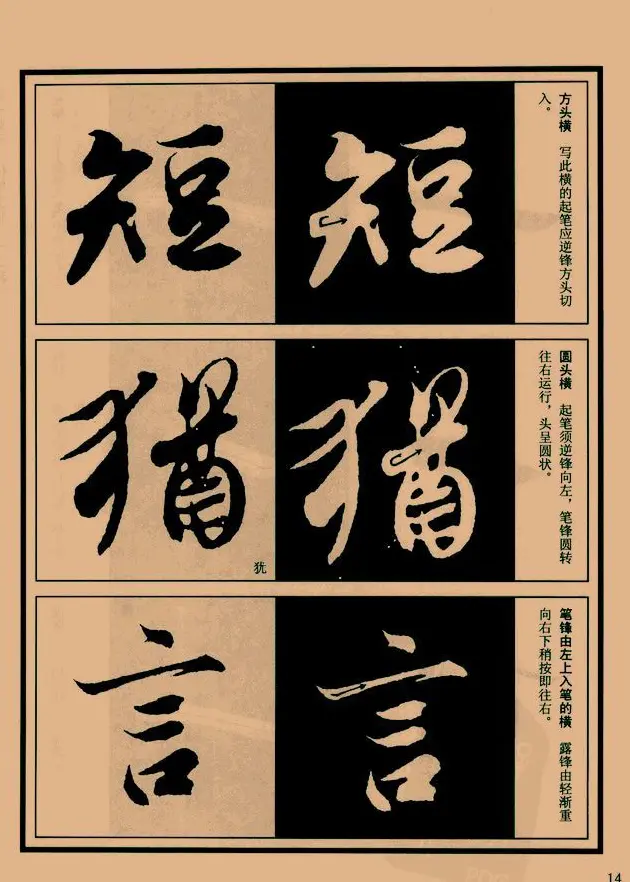 短 短
方头横 写此横的起笔应逆锋方头切
入。
猶 猶
犹
圆头横 起笔须逆锋向左，笔锋圆转
往右运行，头呈圆状。
言 言
笔锋由左上入笔的横 露锋由轻渐重
向右下稍按即往右。
14